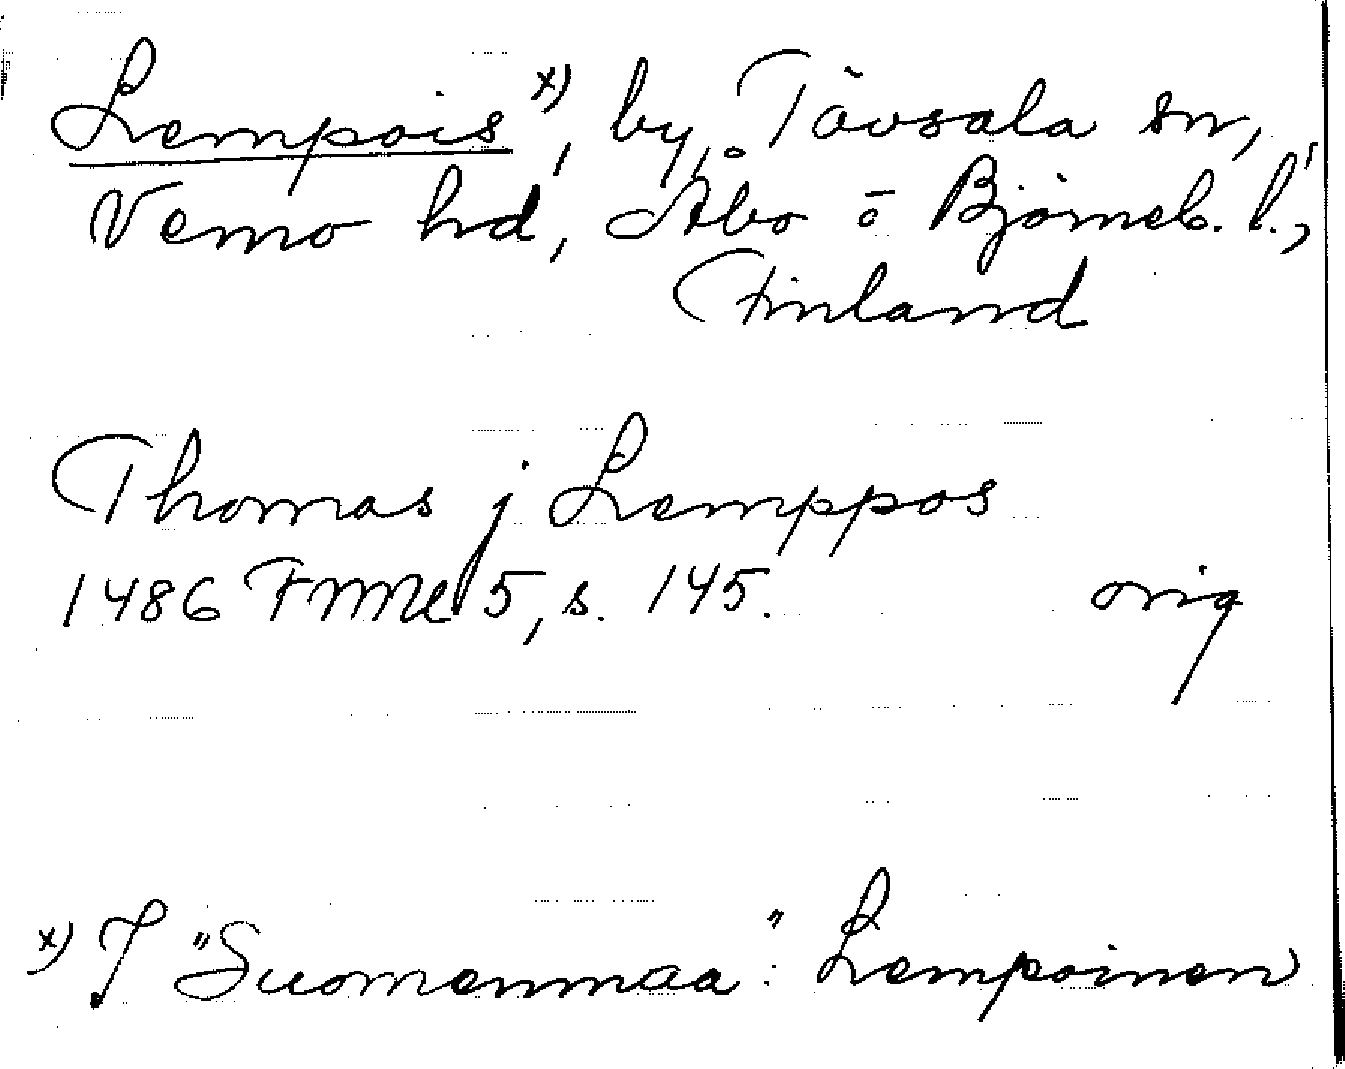 Lempois x), by, Tövsala sn,
Vemo hd, Åbo o Björneb. l.,
Finland
Thomas j Lemppos
1486 FMU 5, s. 145. orig
x) I "Suomenmaa": Lempoinen